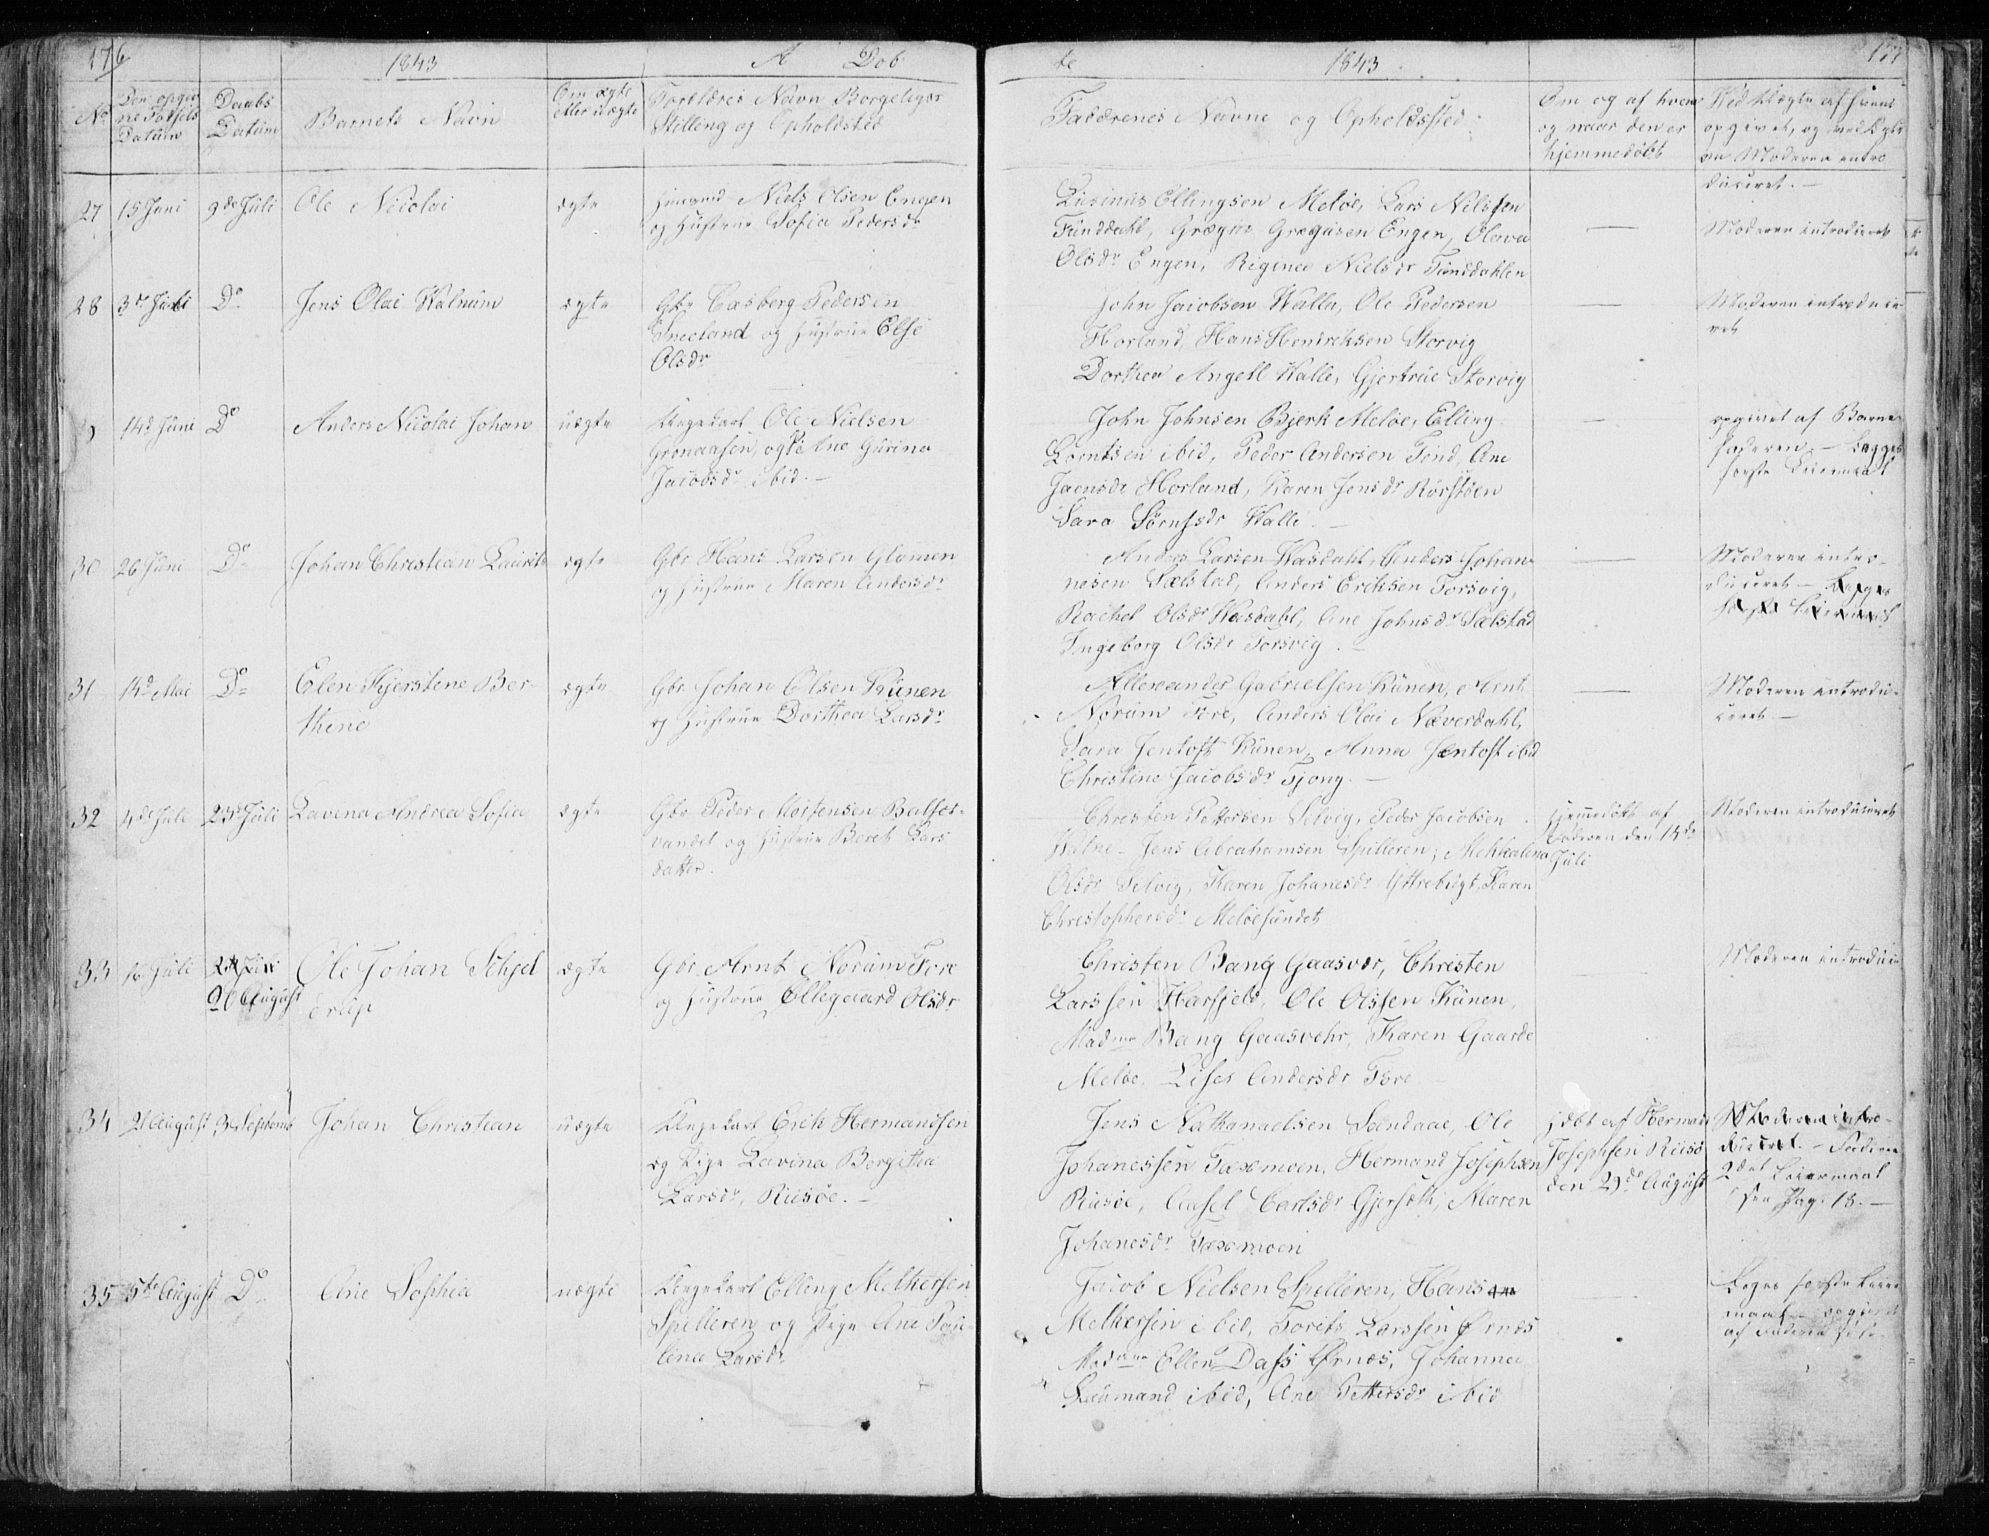 176
1843
A Döb
No
Den opgiv
ne Födsels
Datum
Daabs
Datum
Barnets Navn
Om ægte
eller uægte
Forældres Navn Borgeliger
Stilling og Opholdsted
27 15 Juni 9de Juli Ole Nicolai ægte Niels Olsen Engen
og Hustrue Sofia Pedersdr
28 3de Juli Do Jens Olai Walnum ægte Gbr Casberg Pedersen
Sneeland og Hustrue Else
Olsdr
14de Juni Do Anders Nicolai Johan uægte Ungekarl Ole Nielsen
Grönaasen, Ane Gurina
Jacobsdr ibid. -
30 26 Juni Do Johan Christian Laurits ægte Gbr Hans Larsen Glomen
og Hustrue Maren Andersdr
31 14de Mai Do Elen Kjerstene Ber-
thine
ægte Gbr Johan Olsen Kunen
og Hustrue Dorthea Larsdr
32 4de Juli 23de Juli Lavina Andrea Sofia ægte Gbr Peder Mortensen
vandet og Hustrue Beret Lars
datter.
33 16 Juli 20 August Ole Johan Schjel
derup
ægte Gbr Arnt Norum Fore
og Hustrue Ellegaard Olsdr
34 21 August 3 Septemb Johan Christian uægte Ungekarl Erik Hermandsen
og Pige Lavina Bergitha
Larsdr, Riisöe. -
35 5te August Do Ane Sophia uægte Ungekarl Elling Melkersen
Spilleren og Pige Ane Pau-
lina Larsdr
te
1843
177
Faddrenes Navne og Opholdssted
Om og af hvem
og naar den er
hjemmedöbt
opgivet, og
Moderen intro
duceret. -
Ellingsen Melöe, Lars Nilssen
Funddahl, Grægus Grægusen Engen, Oleva
Olsdr Engen, Rigine Nielsdr Funddahlen
-
Moderen introduceret
John Jacobsen Walla, Ole Pedersen
Horland, Hans Hendriksen Storvig
Dorthea Angell Walle, Gjertrue Storvig
-
Moderen introduce
ret
John Johnsen Bjerk Melöe, Elling
Lorntsen ibid, Peder Andersen Fond, Ane
Jaensdr Horland, Karen Jensdr Rörstöen
Sara Sörnsdr Walle. -
-
opgivet af Barne
faderen. - Begges
förste Leiermaal
Anders Larsen Wasdahl, Anders Johan-
nesen Sælstad, Anders Eriksen Forsvig,
Rachel Olsdr Wasdahl, Ane Johnsdr Sælstad
Ingeborg Olsdr Forsvig. -
-
Moderen intro-
duceret - Begges
förste Leiermaal
Allexander Gabrielsen Kunen, Arnt
Norum Fore, Anders Olai Næverdahl,
Sara Jentoft Kunen, Anna Jentoft ibid
Christine Jacobsdr Tjong. -
-
Moderen introdu-
ceret -
Christen Pettersen Selvig, Peder Jacobsen
Jens Abrahamsen Spilleren, Mehkalina
Olsdr Selvig, Karen Johanesdr Yttrebugt, Karen
Christophersdr Melöesundet
Hjemmedöbt af
Faderen den 14de
Juli
Moderen introduceret
Christen Bang Gaasvær, Christen
Larssen Harfjeld, Ole Olssen Kunen,
Madme Bang Gaasvehr, Karen Gaarde
Melöe. Lises Andersdr Fore -
-
Moderen introdu
Jens Nathanaelsen Sandaae, Ole
Johanessen Faxemoen, Hermand Josephsen
Riisöe, Aasel Carlsdr Gjersæth, Maren
Johanesdr Faxemoen
döbt af Herman
Josephsen Riisö
den 29de August
Moderen intro-
duceret. - Faderens
2det Leiermaal
see Pag: 18. -
Jacob Nielsen Spilleren, Hans
Melkersen ibid, Forits Larssen Örnæs
Madme Ellen Dass Örnæs, Johanna
Laumand ibid, Ane Pettersdr ibid
-
Beges förste Leier
maal - opgivet
af Faderen